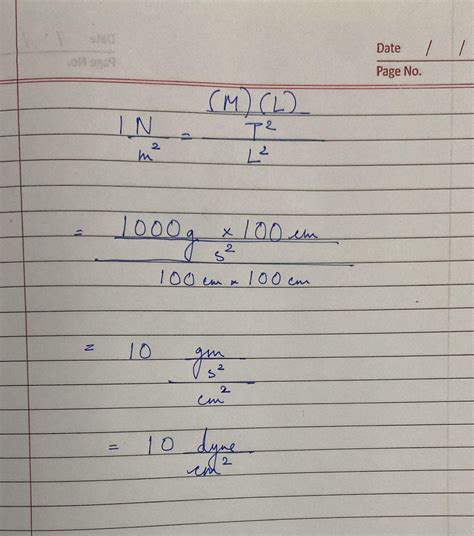 Date / /
Page No.
1 N / m² = (M) (L) / T² / L²
= 1000g × 100 cm / s² / 100 cm × 100 cm
= 10 gm / s² / cm²
= 10 dyne / cm²